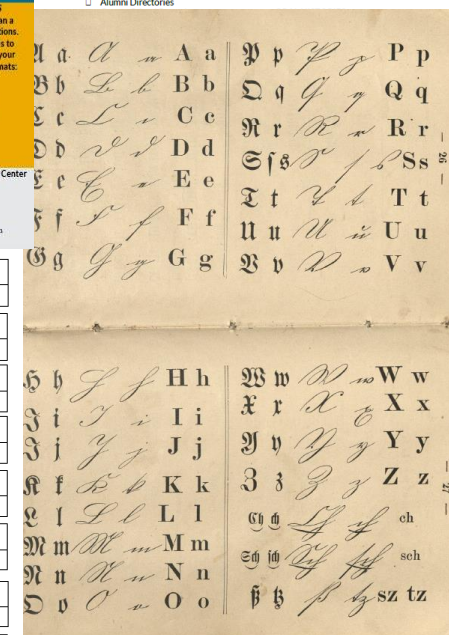 Alumni Directories
an a
tions.
s to
your
mats:
Center
A a A a A a
B b B b B b
C c C c C c
D d D d D d
E e E e E e
F f F f F f
G g G g G g
P p P p P p
Q q Q q Q q
R r R r R r
S ſ s S ſ s S s
T t T t T t
U u U u U u
V v V v V v
— 26 —
H h H h H h
I i I i I i
J j J j J j
K k K k K k
L l L l L l
M m M m M m
N n N n N n
O o O o O o
W w W w W w
X x X x X x
Y y Y y Y y
Z z Z z Z z
Ch ch Ch ch ch
Sch ſch Sch ſch sch
ß tz ß tz sz tz
— 27 —